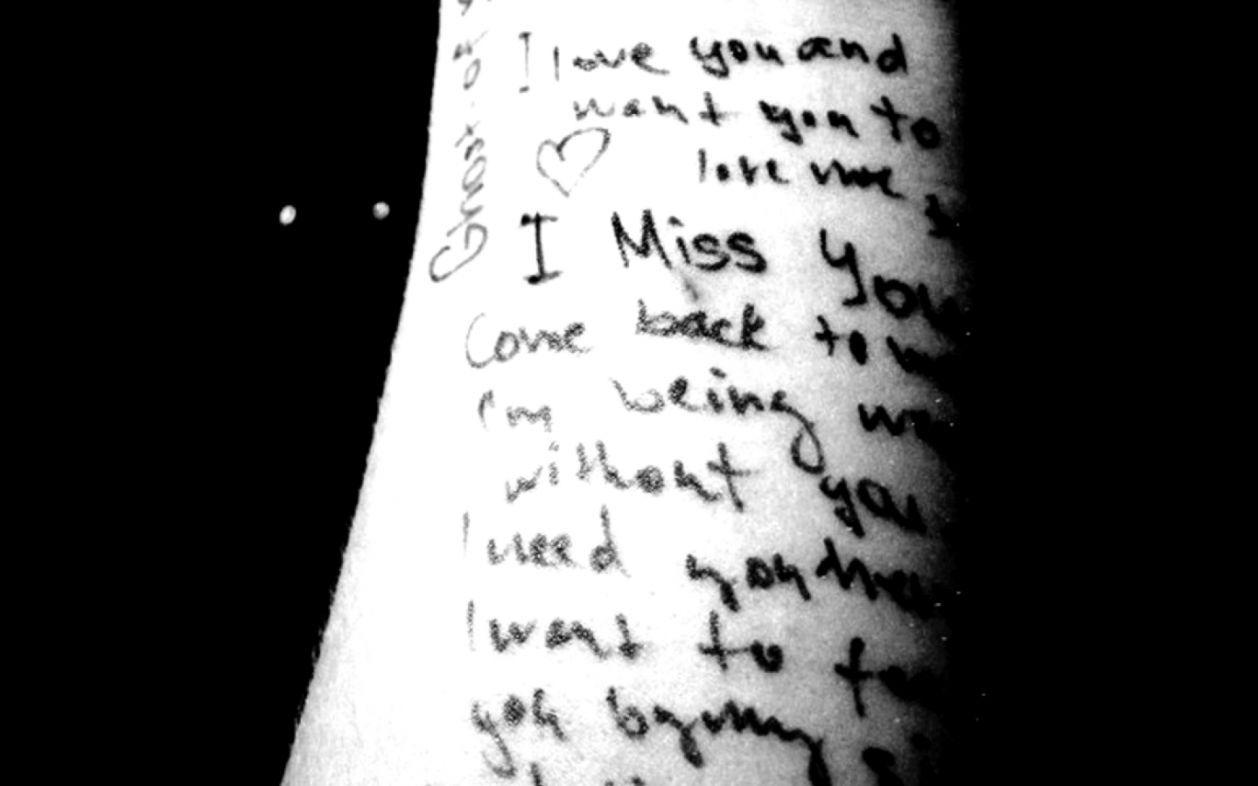 I love you and
want you to
love me
I Miss You
Come back to
I'm being
without you
I need you
I want to
you by my
Ghost of